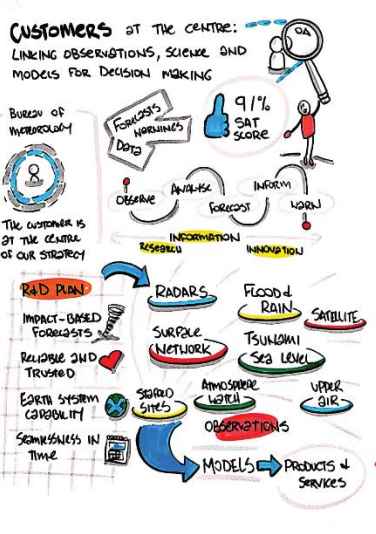 CUSTOMERS AT THE CENTRE:
LINKING OBSERVATIONS, SCIENCE AND
MODELS FOR DECISION MAKING
BUREAU OF
METEOROLOGY
THE CUSTOMER IS
AT THE CENTRE
OF OUR STRATEGY
FORECASTS
WARNINGS
DATA
91%
SAT
SCORE
OBSERVE
ANALYSE
FORECAST
INFORM
WARN
INFORMATION
RESEARCH
INNOVATION
R&D PLAN
IMPACT-BASED
FORECASTS
RELIABLE AND
TRUSTED
EARTH SYSTEM
CAPABILITY
SEAMLESSNESS IN
TIME
RADARS
FLOOD &
RAIN
SATELLITE
SURFACE
NETWORK
TSUNAMI
SEA LEVEL
STAFFED
SITES
ATMOSPHERE
WATCH
UPPER
AIR
OBSERVATIONS
MODELS
PRODUCTS &
SERVICES